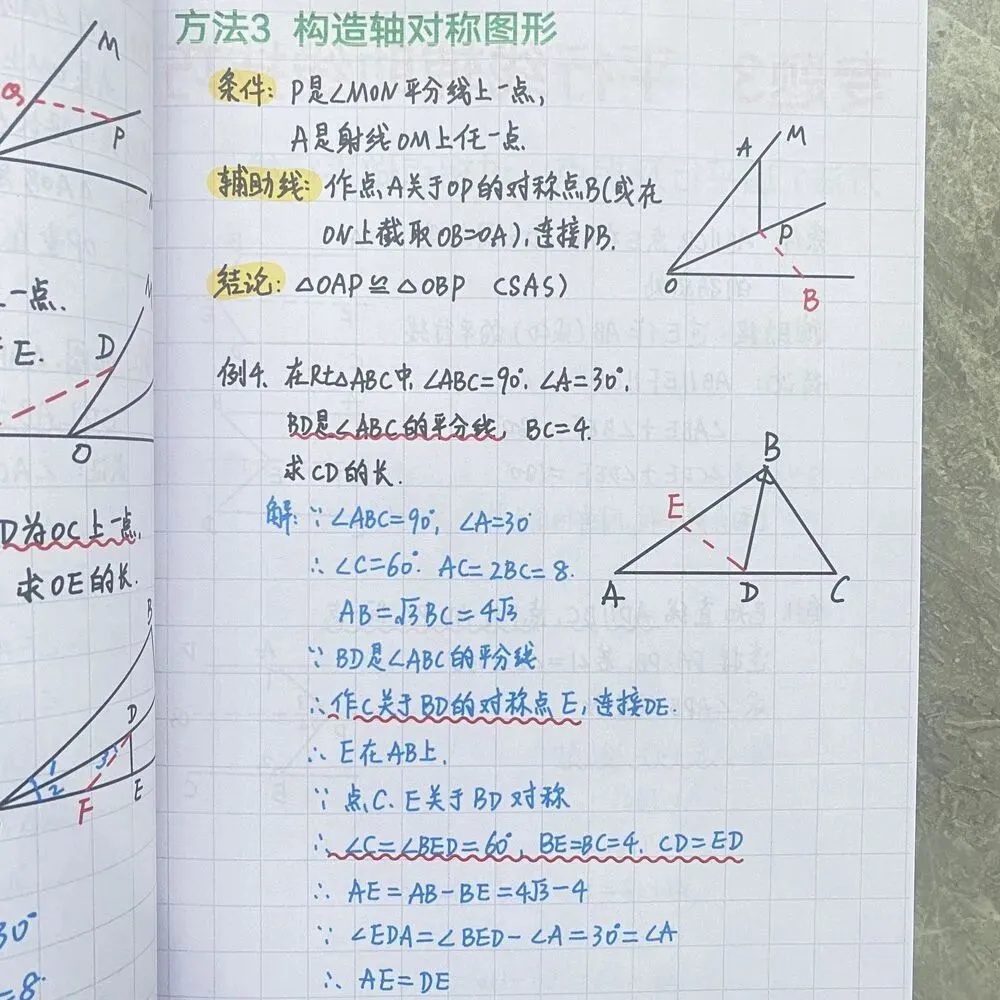 方法3 构造轴对称图形
条件: P是∠MON平分线上一点,
A是射线OM上任一点.
辅助线: 作点A关于OP的对称点B(或在
ON上截取OB=OA),连接PB.
结论: △OAP≌△OBP (SAS)
M
A
P
O
B
例4. 在Rt△ABC中, ∠ABC=90°. ∠A=30°.
BD是∠ABC的平分线, BC=4.
求CD的长.
B
E
A
D
C
解: ∵ ∠ABC=90°, ∠A=30
∴ ∠C=60°. AC=2BC=8.
AB=√3BC=4√3
∵ BD是∠ABC的平分线
∴作C关于BD的对称点E,连接DE.
∴ E在AB上.
∵ 点C.E关于BD对称
∴ ∠C=∠BED=60°, BE=BC=4. CD=ED
∴ AE=AB-BE=4√3-4
∵ ∠EDA=∠BED-∠A=30°=∠A
∴ AE=DE
M
P
一点.
E.
D
O
D为OC上一点,
求OE的长.
B
D
1
2
3
F
E
30°
=8.